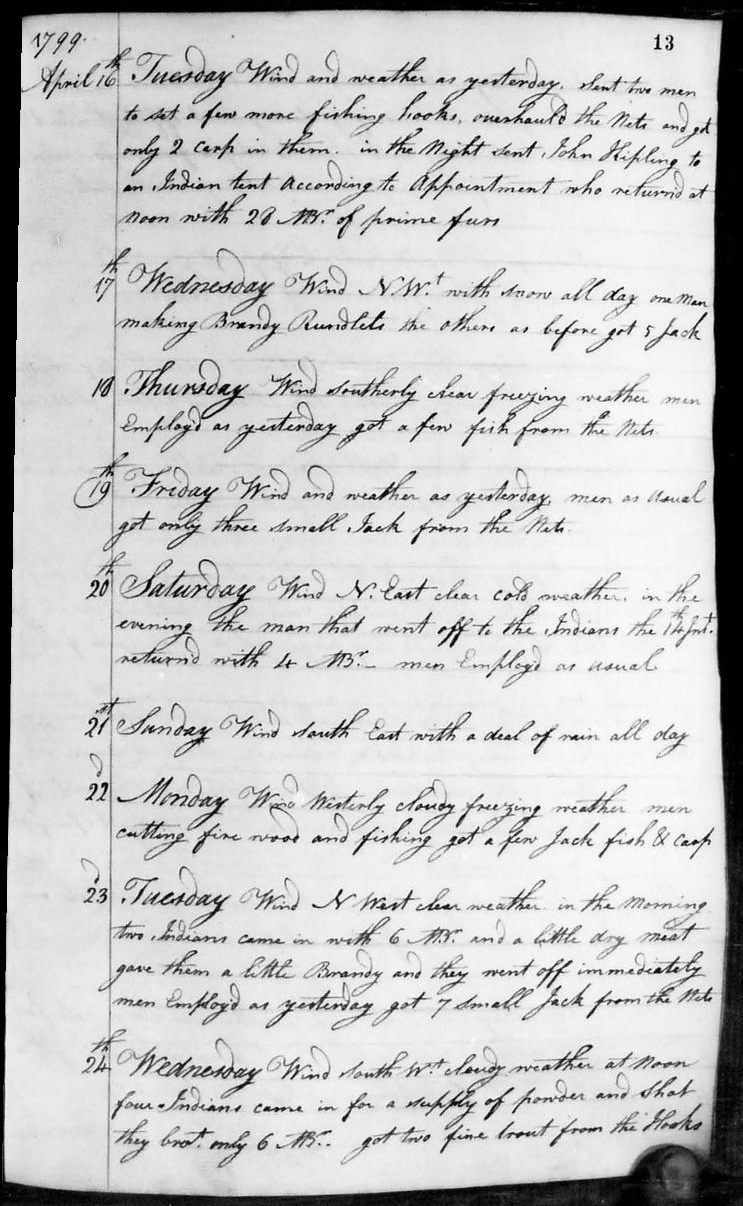 1799.
13
April 16th Tuesday Wind and weather as yesterday, sent two men
to set a few more fishing hooks, overhauld the Nets and got
only 2 carp in them. in the Night sent John Kipling to
an Indian tent According to Appointment who returnd at
Noon with 28 MBr. of prime furs
17th Wednesday Wind N.Wt. with snow all day one Man
making Brandy Rundlets the others as before got 5 Jack
18 Thursday Wind southerly clear freezing weather men
Employd as yesterday got a few fish from the Nets.
19th Friday Wind and weather as yesterday, men as usual
got only three small Jack from the Nets.
20th Saturday Wind N. East clear cold weather. in the
evening the man that went off to the Indians the 14th Int.
returnd with 4 MBr. men Employd as usual
21st Sunday Wind south East with a deal of rain all day
22d Monday Wind Westerly cloudy freezing weather men
cutting fire wood and fishing got a few Jack fish & Carp
23d Tuesday Wind N West clear weather. in the Morning
two Indians came in with 6 MBr. and a little dry meat
gave them a little Brandy and they went off immediately
men Employd as yesterday got 7 small Jack from the Nets
24th Wednesday Wind south Wt. cloudy weather at Noon
four Indians came in for a supply of powder and shot
they brot. only 6 MBr. got two fine trout from the Hooks